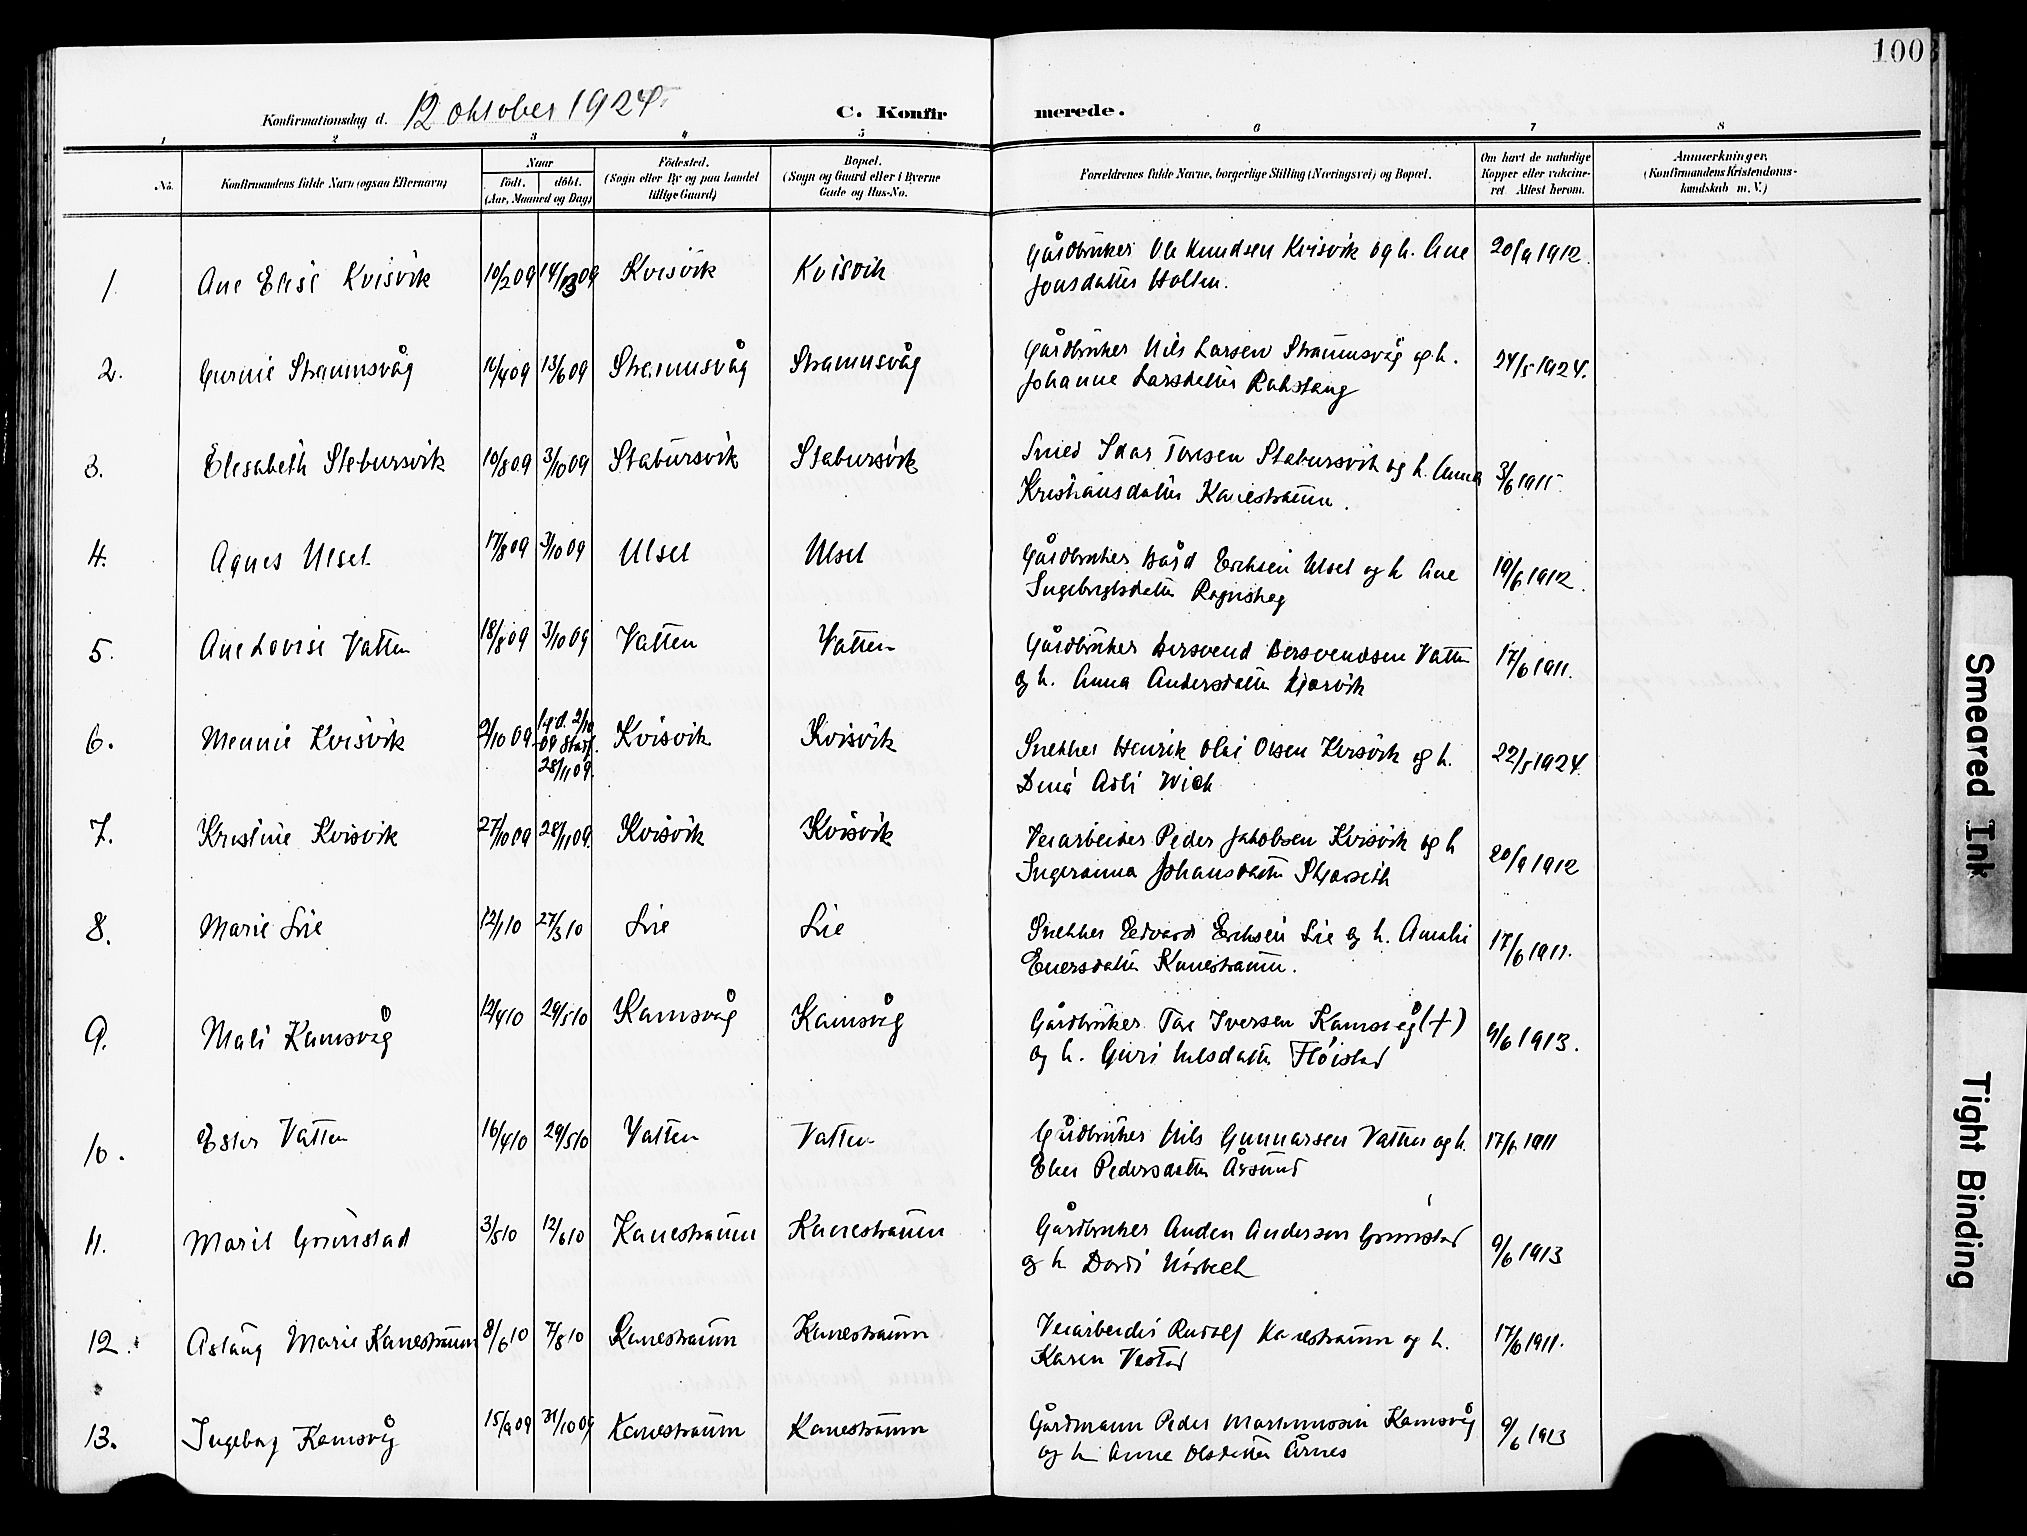 100
Konfirmationsdag d. 12 oktober 1924. C. Konfir merede.
1 2 3 4 5 6 7 8
No. Konfirmandens fulde Navn (ogsaa Efternavn) Naar født. døbt. (Aar, Maaned og Dag) Fødested. (Sogn eller By og paa Landet tillige Gaard) Bopæl. (Sogn og Gaard eller i Byerne Gade og Hus-No. Forældrenes fulde Navne, borgerlige Stilling (Næringsvei) og Bopæl. Om havt de naturlige Kopper eller vaccineret. Attest herom. Anmærkninger. (Konfirmandens Kristendomskundskab m. V.)
1. Ane Elise Kvisvik 10/2 09 14/3 09 Kvisvik Kvisvik Gårdbruker Ole Knudsen Kvisvik og h. Ane 20/9 1912.
Jonsdatter Holten.
2. Gurine Straumsvåg 16/4 09 13/6 09 Straumsvåg Straumsvåg Gårdbruker Nils Larsen Straumsvåg og h. 24/5 1924.
Johanne Larsdatter Rakstang
3. Elisabeth Stabursvik 10/8 09 3/10 09 Stabursvik Stabursvik Smed Idar Toresen Stabursvik og h. Anna 3/6 1915.
Kristiansdatter Kanestraum.
4. Agnes Ulset 17/8 09 3/10 09 Ulset Ulset Gårdbruker Bård Eriksen Ulset og h. Ane 19/6 1912.
Ingebrigtsdatter
5. Ane Lovise Vatten 18/8 09 3/10 09 Vatten Vatten Gårdbruker Bersvend Bersvendsen Vatten 17/6 1911.
og h. Anna Andersdatter Kjørvik
6. Mennie Kvisvik 2/10 09 hjd. 2/10 09 Stadf. 28/11 09. Kvisvik Kvisvik Snekker Henrik Olai Olsen Kvisvik og h. 22/5 1924.
Dina Wiek
7. Kristine Kvisvik 27/10 09 28/11 09. Kvisvik Kvisvik Veiarbeider Peder Jakobsen Kvisvik og h 20/9 1912
Ingeranna Johansdatter
8. Marie Lie 12/1 10 27/3 10 Lie Lie Snekker Edvard Eriksen Lie og h. Amalie 17/6 1911.
Enersdatter Kanestraum.
9. Mali Kamsvåg 12/4 10 29/5 10 Kamsvåg Kamsvåg Gårdbruker Tore Iversen Kamsvåg (+) 9/6 1913.
og h. Guri Nilsdatter Fløistad
10. Ester Vatten 16/4 10 29/5 10 Vatten Vatten Gårdbruker Nils Gunnarsen Vatten og h. 17/6 1911
Elen Pedersdatter Årsund
11. Marit Grimstad 3/5 10 12/6 10 Kanestraum Kanestraum Gårdbruker Anders Anderson Grimstad 9/6 1913
og h Dordi Nosbeck
12. Aslaug Marie Kanestraum 8/6 10 7/8 10 Kanestraum Kanestraum Veiarbeider Rudolf Kanestraum og h. 17/6 1911.
Karen Vestad
13. Ingeborg Kamsvåg 15/9 09 31/10 09 Kanestraum Kanestraum Gårdmann Peder Martinussen Kamsvåg 9/6 1913
og h Anne Olsdatter Årnes
Smeared Ink
Tight Binding